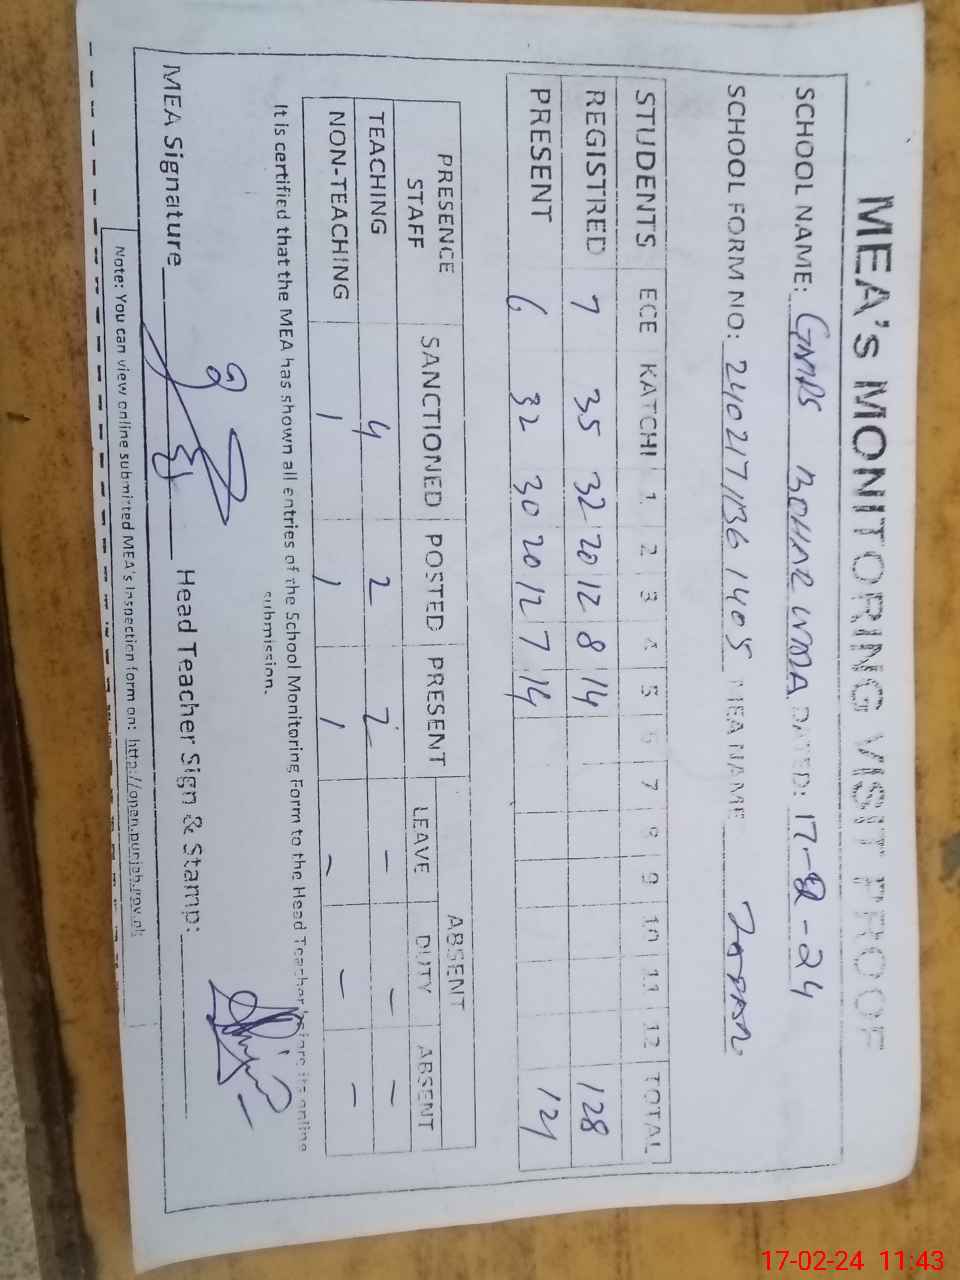 MEA's MONITORING VISIT PROOF
SCHOOL NAME: GMPS DATED: 17-02-24
SCHOOL FORM NO: 240217/136 1405 MEA NAME
STUDENTS ECE KATCHI 1 2 3 4 5 6 7 8 9 10 11 12 TOTAL
REGISTRED 7 35 32 20 12 8 14 128
PRESENT 6 32 30 20 12 7 14 121
PRESENCE STAFF SANCTIONED POSTED PRESENT ABSENT
LEAVE DUTY ABSENT
TEACHING 4 2 2 - - -
NON-TEACHING 1 1 1 - - -
It is certified that the MEA has shown all entries of the School Monitoring Form to the Head Teacher before its online
submission.
MEA Signature Head Teacher Sign & Stamp:
Note: You can view online submitted MEA's Inspection form on: http://open.punjab.gov.pk
17-02-24 11:43